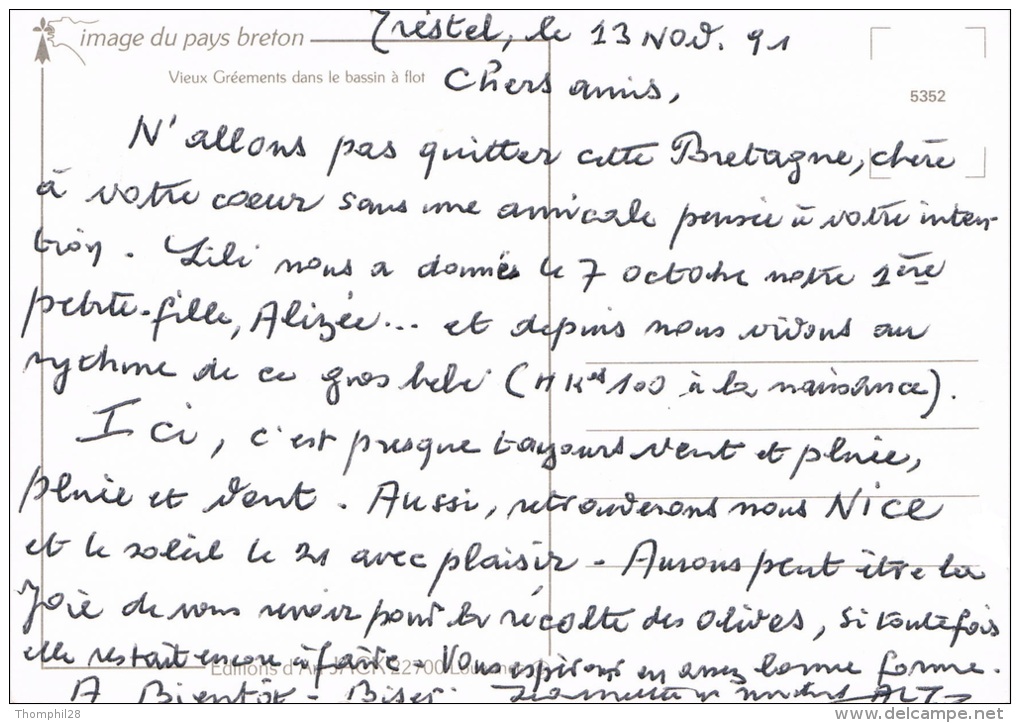 image du pays breton
Tréstel, le 13 Nov. 91
Vieux Gréements dans le bassin à flot
5352
Chers amis,
N'allons pas quitter cette Bretagne, chère
à votre coeur sans une amicale pensée à votre inten-
tion. Lili nous a donnés le 7 octobre notre 1ère
petite-fille, Alizée... et depuis nous vivons au
rythme de ce gros bébé (4 Kgs 100 à la naissance).
Ici, c'est presque toujours vent et pluie,
pluie et vent. Aussi, retrouverons nous Nice
et le soleil le 21 avec plaisir - Aurons peut être la
Joie de vous revoir pour la récolte des olives, si toutefois
elle restait encore à faire - Vous espérons en assez bonne forme.
Editions d'Art JACK 22700
A Bientôt - Bises.
Thomphil28
www.delcampe.net